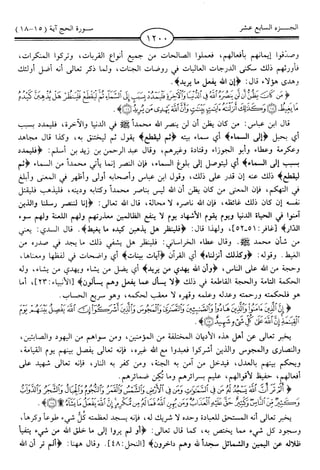 الجـــزء السابع عشر
١٢٠٠
سورة الحج آية (١٥-١٨)
وصدقوا إيمانهم بأفعالهم، فعملوا الصالحات من جميع أنواع القربات، وتركوا المنكرات،
فأورثهم ذلك سكنى الدرجات العاليات في روضات الجنات، ولما ذكر تعالى أنه أضل أولئك
وهدى هؤلاء قال: ﴿إن الله يفعل ما يريد﴾.
﴿مَن كَانَ يَظُنُّ أَن لَّن يَنصُرَهُ اللَّهُ فِي الدُّنْيَا وَالْآخِرَةِ فَلْيَمْدُدْ بِسَبَبٍ إِلَى السَّمَاءِ ثُمَّ لْيَقْطَعْ فَلْيَنظُرْ هَلْ يُذْهِبَنَّ كَيْدُهُ
مَا يَغِيظُ ۝ وَكَذَٰلِكَ أَنزَلْنَاهُ آيَاتٍ بَيِّنَاتٍ وَأَنَّ اللَّهَ يَهْدِي مَن يُرِيدُ ۝﴾.
قال ابن عباس: من كان يظن أن لن ينصر الله محمداً ﷺ في الدنيا والآخرة، فليمدد بسبب
أي بحبل ﴿إلى السماء﴾ أي سماء بيته ﴿ثم ليقطع﴾ يقول ثم ليختنق به، وكذا قال مجاهد
وعكرمة وعطاء وأبو الجوزاء وقتادة وغيرهم، وقال عبد الرحمن بن زيد بن أسلم: ﴿فليمدد
بسبب إلى السماء﴾ أي ليتوصل إلى بلوغ السماء، فإن النصر إنما يأتي محمداً من السماء ﴿ثم
ليقطع﴾ ذلك عنه إن قدر على ذلك، وقول ابن عباس وأصحابه أولى وأظهر في المعنى وأبلغ
في التهكم، فإن المعنى من كان يظن أن الله ليس بناصر محمداً وكتابه ودينه، فليذهب فليقتل
نفسه إن كان ذلك غائظه، فإن الله ناصره لا محالة، قال الله تعالى: ﴿إنا لننصر رسلنا والذين
آمنوا في الحياة الدنيا ويوم يقوم الأشهاد يوم لا ينفع الظالمين معذرتهم ولهم اللعنة ولهم سوء
الدار﴾ [غافر: ٥١، ٥٢]، ولهذا قال: ﴿فلينظر هل يذهبن كيده ما يغيظ﴾. قال السدي: يعني
من شأن محمد ﷺ. وقال عطاء الخراساني: فلينظر هل يشفي ذلك ما يجد في صدره من
الغيظ. وقوله: ﴿وكذلك أنزلناه﴾ أي القرآن ﴿آيات بينات﴾ أي واضحات في لفظها ومعناها،
وحجة من الله على الناس، ﴿وأن الله يهدي من يريد﴾ أي يضل من يشاء ويهدي من يشاء، وله
الحكمة التامة والحجة القاطعة في ذلك ﴿لا يسأل عما يفعل وهم يسألون﴾ [الأنبياء: ٢٣]، أما
هو فلحكمته ورحمته وعدله وعلمه وقهره لا معقب لحكمه، وهو سريع الحساب.
﴿إِنَّ الَّذِينَ آمَنُوا وَالَّذِينَ هَادُوا وَالصَّابِئِينَ وَالنَّصَارَىٰ وَالْمَجُوسَ وَالَّذِينَ أَشْرَكُوا إِنَّ اللَّهَ يَفْصِلُ بَيْنَهُمْ يَوْمَ
الْقِيَامَةِ إِنَّ اللَّهَ عَلَىٰ كُلِّ شَيْءٍ شَهِيدٌ ۝﴾.
يخبر تعالى عن أهل هذه الأديان المختلفة من المؤمنين، ومن سواهم من اليهود والصابئين،
والنصارى والمجوس والذين أشركوا فعبدوا مع الله غيره، فإنه تعالى يفصل بينهم يوم القيامة،
ويحكم بينهم بالعدل، فيدخل من آمن به الجنة، ومن كفر به النار، فإنه تعالى شهيد على
أفعالهم، حفيظ لأقوالهم، عليم بسرائرهم وما تكن ضمائرهم.
﴿أَلَمْ تَرَ أَنَّ اللَّهَ يَسْجُدُ لَهُ مَن فِي السَّمَاوَاتِ وَمَن فِي الْأَرْضِ وَالشَّمْسُ وَالْقَمَرُ وَالنُّجُومُ وَالْجِبَالُ وَالشَّجَرُ وَالدَّوَابُّ
وَكَثِيرٌ مِّنَ النَّاسِ وَكَثِيرٌ حَقَّ عَلَيْهِ الْعَذَابُ وَمَن يُهِنِ اللَّهُ فَمَا لَهُ مِن مُّكْرِمٍ إِنَّ اللَّهَ يَفْعَلُ مَا يَشَاءُ ۝﴾.
يخبر تعالى أنه المستحق للعبادة وحده لا شريك له، فإنه يسجد لعظمته كل شيء طوعاً وكرهاً،
وسجود كل شيء مما يختص به، كما قال تعالى: ﴿أو لم يروا إلى ما خلق الله من شيء يتفيأ
ظلاله عن اليمين والشمائل سجداً لله وهم داخرون﴾ [النحل: ٤٨]. وقال ههنا: ﴿ألم تر أن الله